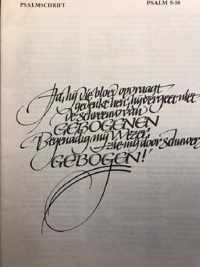 PSALMSCHRIFT PSALM 9-10
Ja, hij die bloed opvraagt
gedenkt hen, hij vergeet niet
de schreeuw van
GEBOGENEN
Begenadig mij Wezer,
zie mij door schuwer
GEBOGEN!